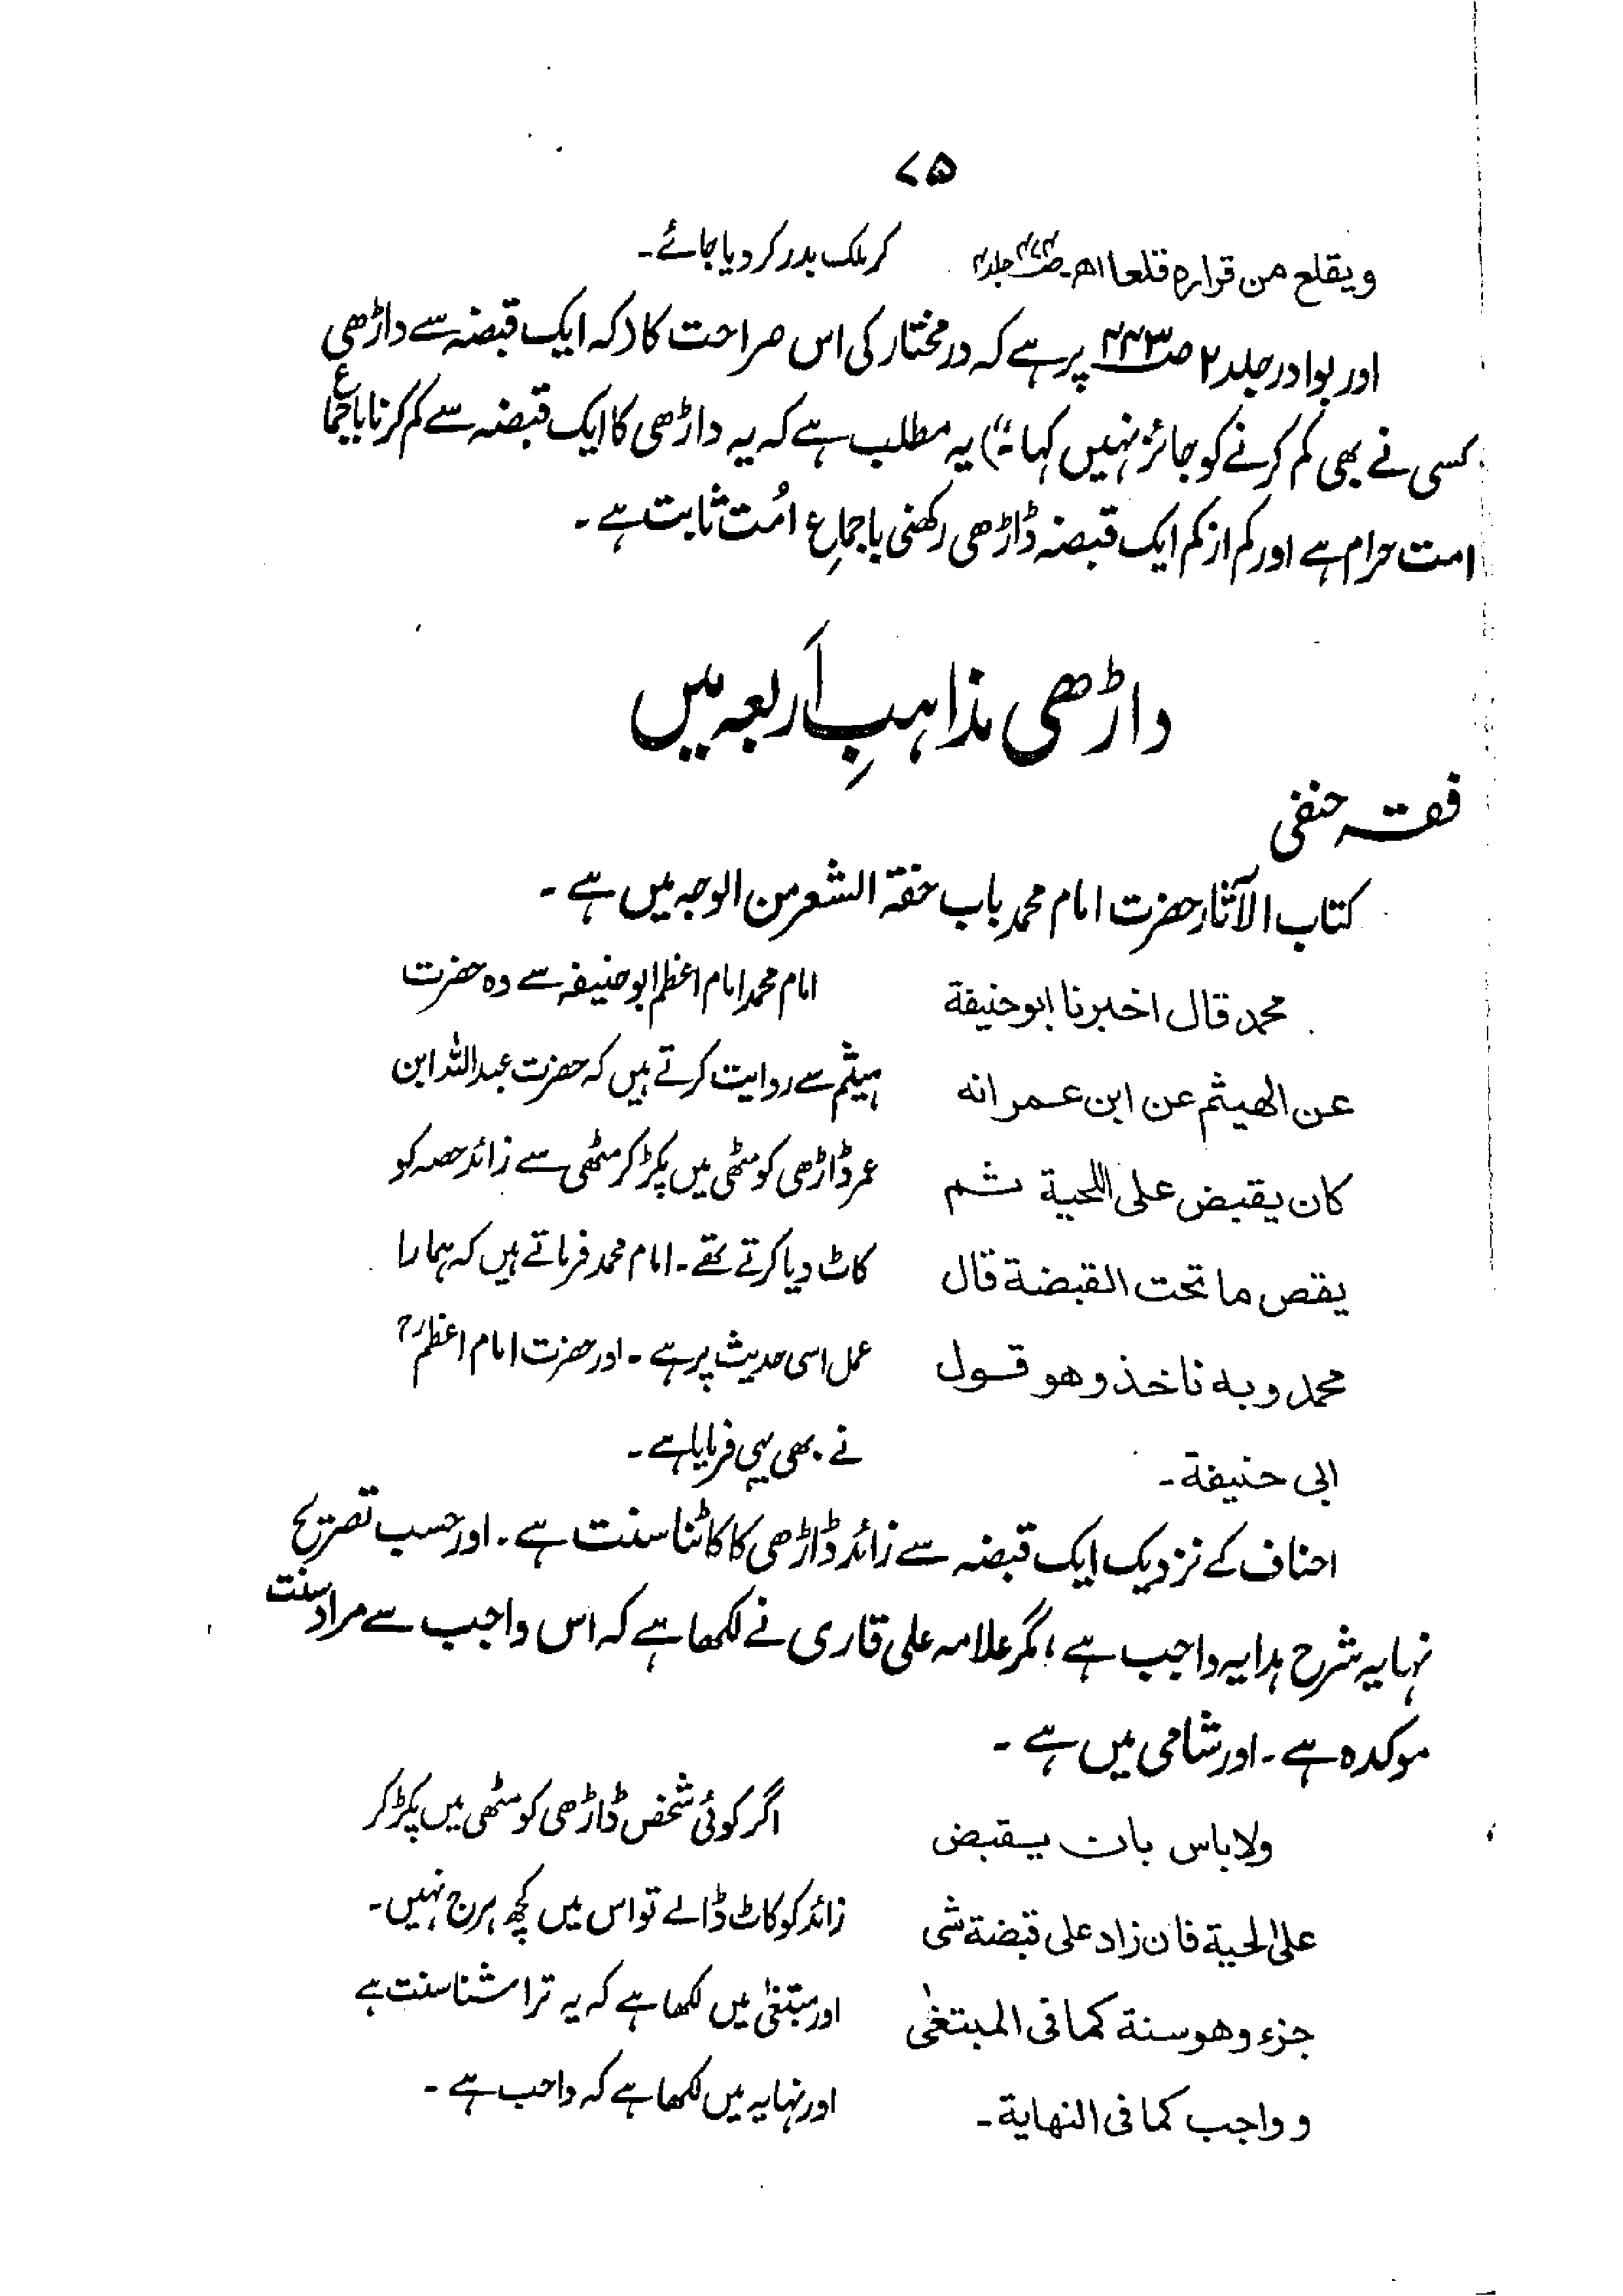 ۷۵
ويقلع من قراره قلعا اھ۔ جلد
کر ملک بدر کر دیا جائے۔
اور بوادر جلد ۲ ص۴۴۳ پر ہے کہ در مختار کی اس صراحت کا (کہ ایک قبضہ سے داڑھی
کسی نے بھی کم کرنے کو جائز نہیں کہا۔") یہ مطلب ہے کہ یہ داڑھی کا ایک قبضہ سے کم کرنا باجماع
امت حرام ہے اور کم از کم ایک قبضہ ڈاڑھی رکھنی باجماعِ اُمت ثابت ہے۔
داڑھی مذاہبِ اَربعہ میں
فقہ حنفی
کتاب الآثار حضرت امام محمد باب حفة الشعر من الوجہ میں ہے۔
محمد قال اخبرنا ابوحنیفة
عن الهيثم عن ابن عمر انه
كان يقبض على اللحية ثم
يقص ما تحت القبضة قال
محمد وبه ناخذ وهو قول
ابی حنیفة۔
امام محمد امام اعظم ابو حنیفہ سے وہ حضرت
ہیثم سے روایت کرتے ہیں کہ حضرت عبداللہ ابن
عمر ڈاڑھی کو مٹھی میں پکڑ کر مٹھی سے زائد حصہ کو
کاٹ دیا کرتے تھے۔ امام محمد فرماتے ہیں کہ ہمارا
عمل اسی حدیث پر ہے۔ اور حضرت امام اعظمؒ
نے بھی یہی فرمایا ہے۔
احناف کے نزدیک ایک قبضہ سے زائد ڈاڑھی کا کاٹنا سنت ہے۔ اور حسب تصریح
نہایہ شرح ہدایہ واجب ہے؛ مگر علامہ علی قاری نے لکھا ہے کہ اس واجب سے مراد سنت
موکدہ ہے۔ اور شامی میں ہے۔
ولا باس بان يقبض
على لحية فان زاد على قبضة شی
جزء وهو سنة كما فی المبتغیٰ
و واجب كما فی النهاية۔
اگر کوئی شخص ڈاڑھی کو مٹھی میں پکڑ کر
زائد کو کاٹ ڈالے تو اس میں کچھ ہرج نہیں۔
اور مبتغیٰ میں لکھا ہے کہ یہ تراشنا سنت ہے
اور نہایہ میں لکھا ہے کہ واجب ہے۔